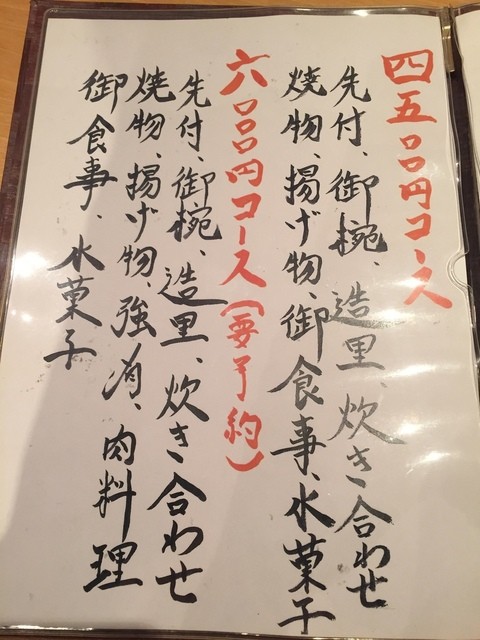 四五〇〇円コース
先付、御椀、造里、炊き合わせ
焼物、揚げ物、御食事、水菓子
六〇〇〇円コース(要予約)
先付、御椀、造里、炊き合わせ
焼物、揚げ物、強肴、肉料理
御食事、水菓子